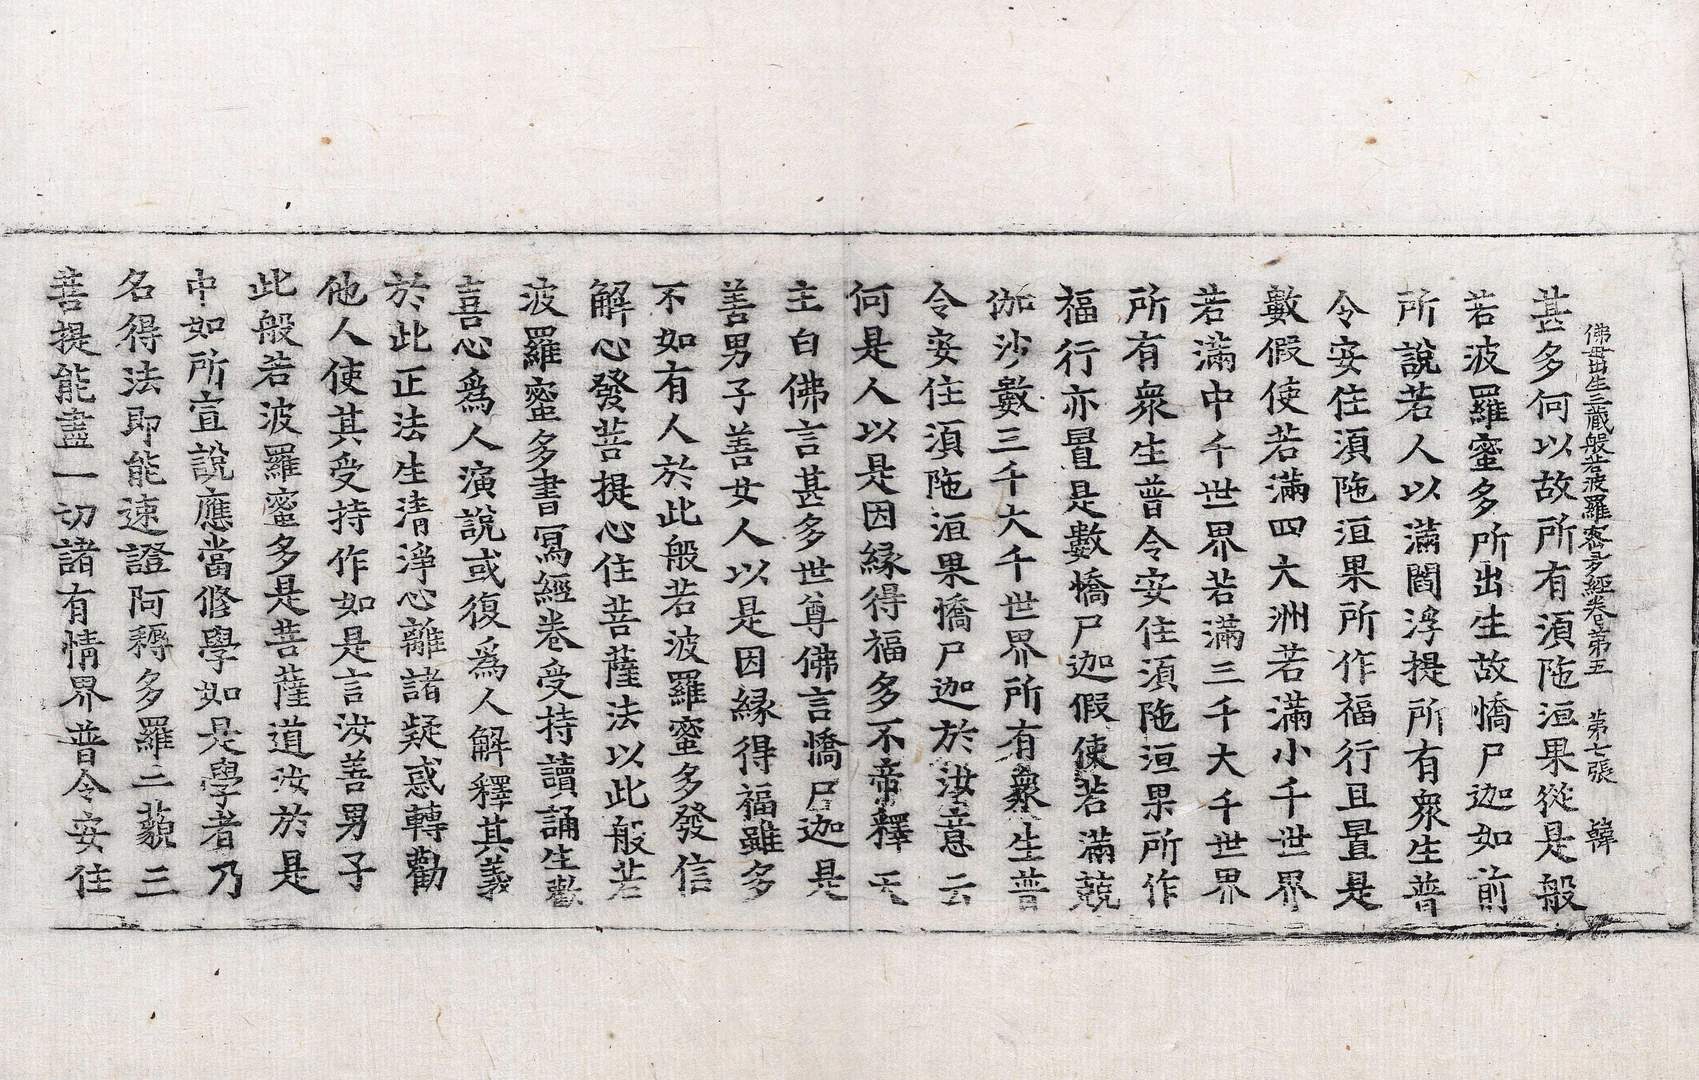 佛母出生三藏般若波羅蜜多經卷第五 第七張 韓
甚多何以故所有須陁洹果從是般
若波羅蜜多所出生故憍尸迦如前
所說若人以滿閻浮提所有衆生普
令安住須陁洹果所作福行且置是
數假使若滿四大洲若滿小千世界
若滿中千世界若滿三千大千世界
所有衆生普令安住須陁洹果所作
福行亦置是數憍尸迦假使若滿兢
伽沙數三千大千世界所有衆生普
令安住須陁洹果憍尸迦於汝意云
何是人以是因緣得福多不帝釋天
主白佛言甚多世尊佛言憍尸迦是
善男子善女人以是因緣得福雖多
不如有人於此般若波羅蜜多發信
解心發菩提心住菩薩法以此般若
波羅蜜多書寫經卷受持讀誦生歡
喜心爲人演說或復爲人解釋其義
於此正法生清淨心離諸疑惑轉勸
他人使其受持作如是言汝善男子
此般若波羅蜜多是菩薩道汝於是
中如所宣說應當修學如是學者乃
名得法即能速證阿耨多羅三藐三
菩提能盡一切諸有情界普令安住